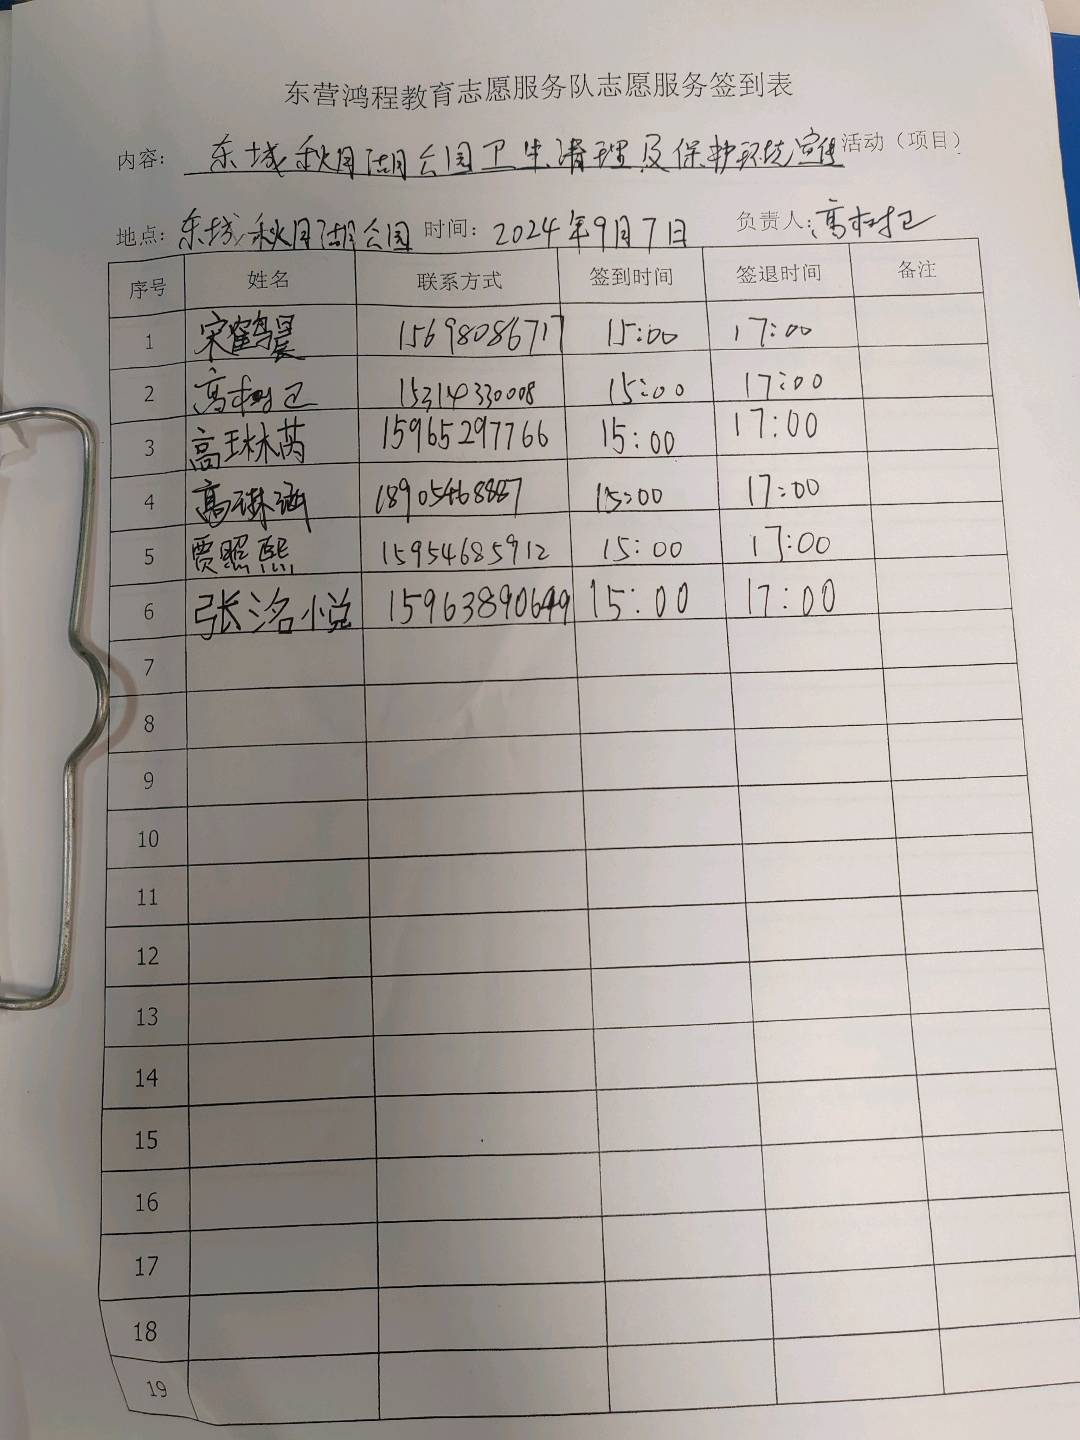 东营鸿程教育志愿服务队志愿服务签到表
内容: 东城秋月湖公园卫生清理及保护环境宣传活动（项目）
地点: 东城秋月湖公园 时间: 2024年9月7日 负责人: 高树卫
序号 姓名 联系方式 签到时间 签退时间 备注
1 宋鹤晨 15698086717 15:00 17:00
2 高树卫 15314330008 15:00 17:00
3 高琳芮 15965297766 15:00 17:00
4 高琳涵 18905468887 15:00 17:00
5 贾照熙 15954685912 15:00 17:00
6 张洺悦 15:00 17:00
7
8
9
10
11
12
13
14
15
16
17
18
19